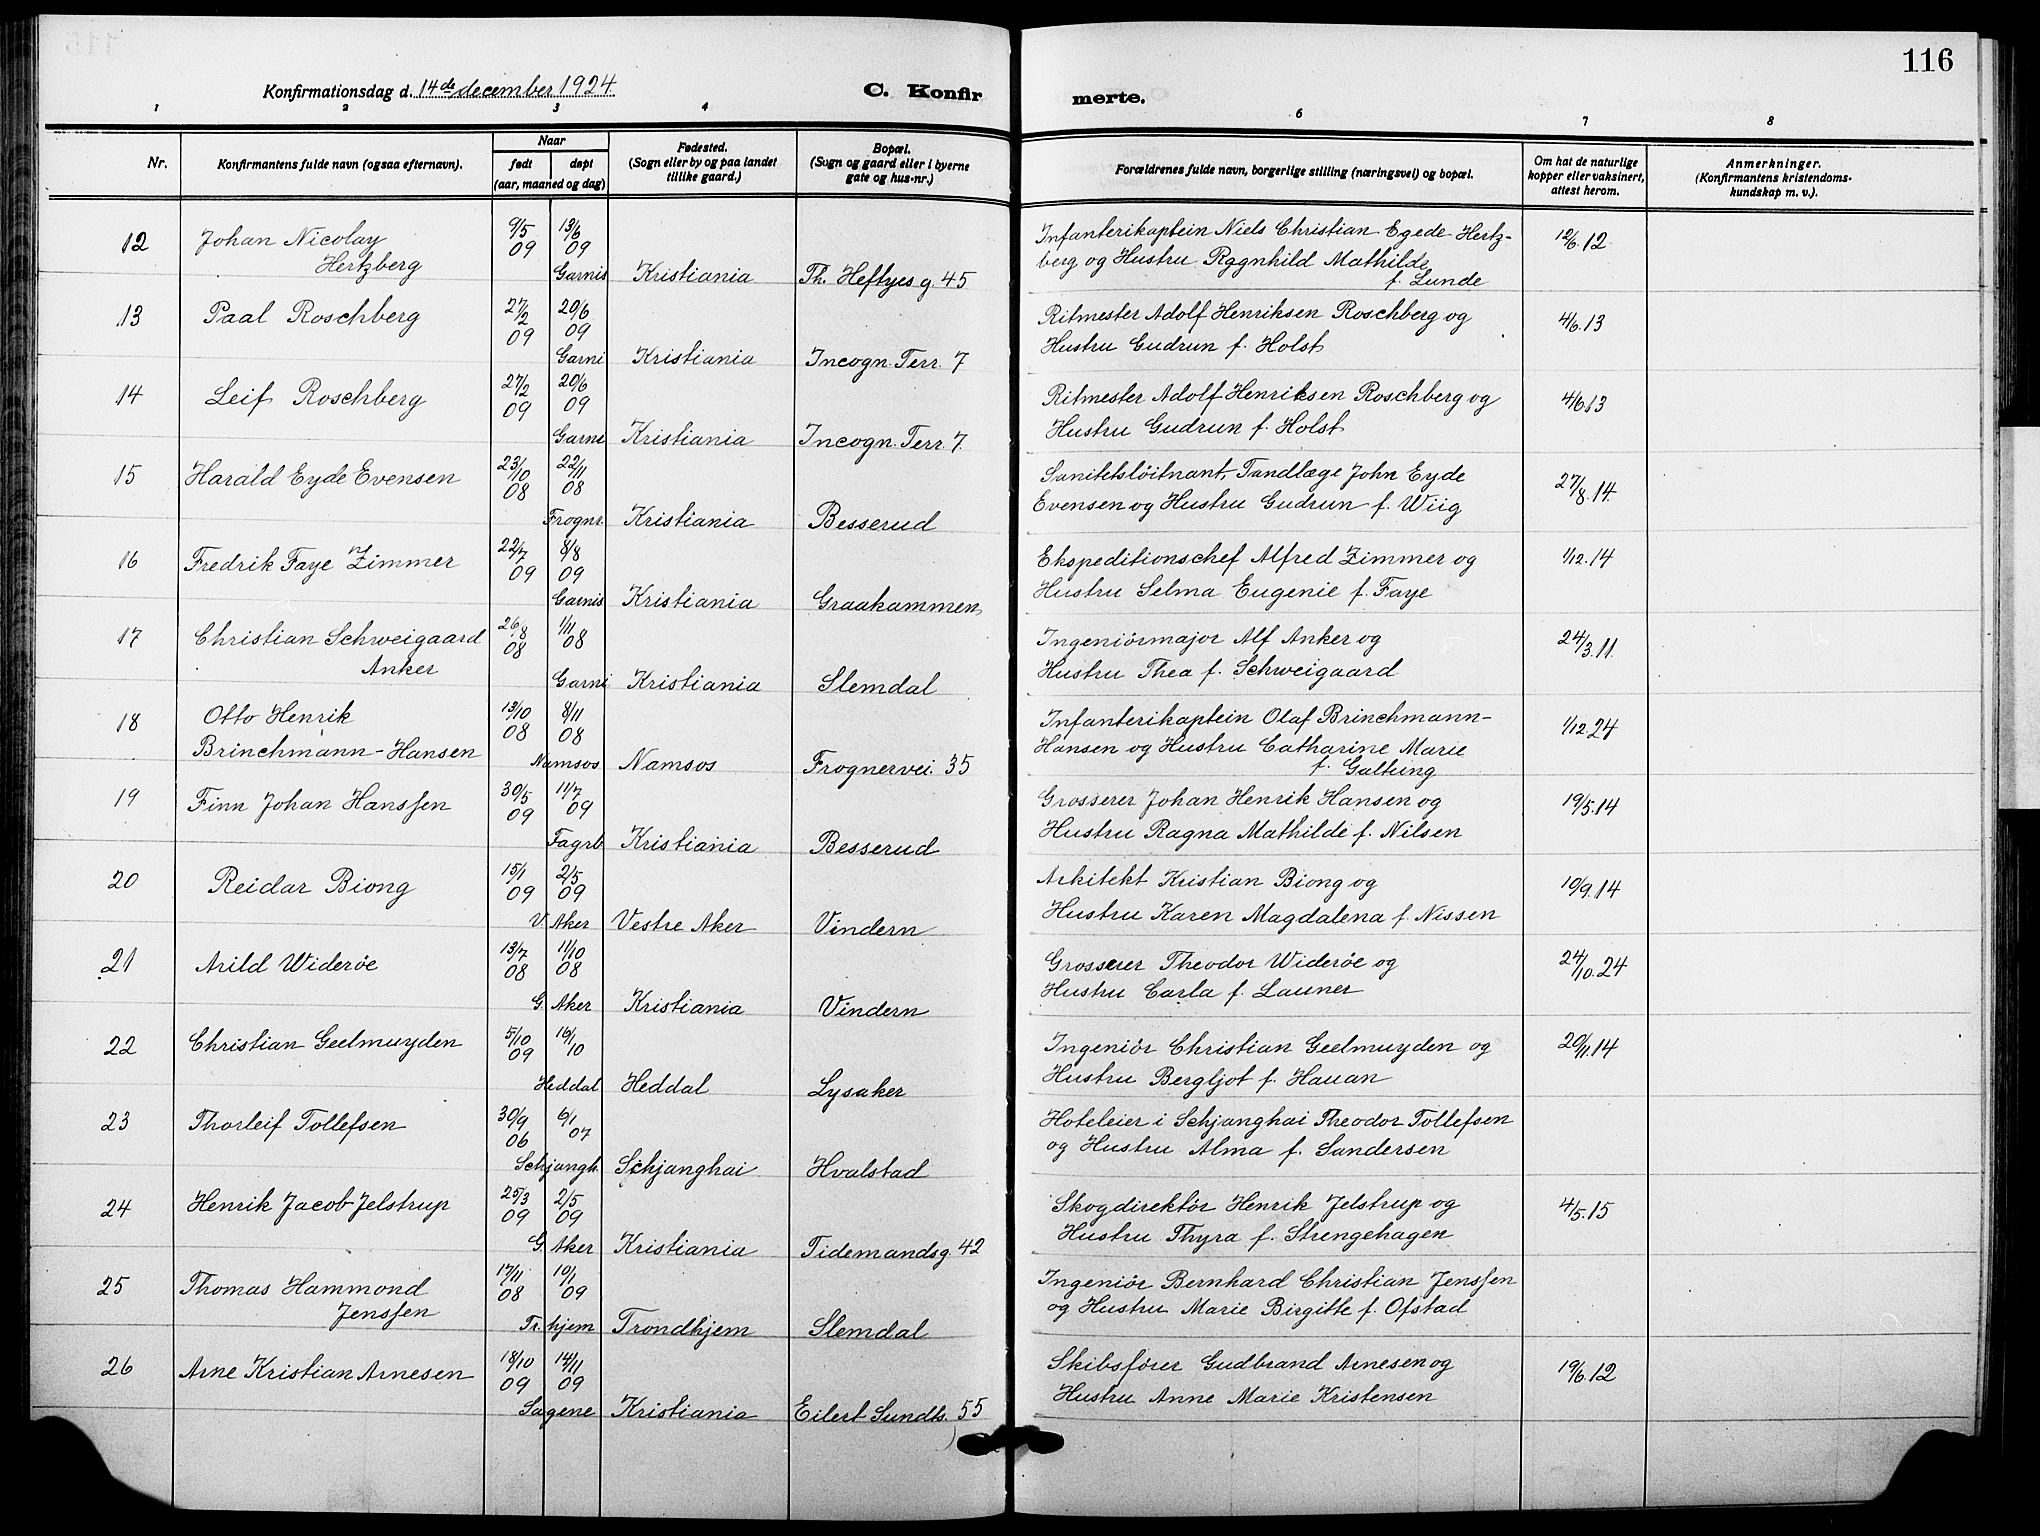 116
Konfirmationsdag d. 14de december 1924. C. Konfir merte.
1 2 3 4 6 7 8
Nr. Konfirmantens fulde navn (ogsaa efternavn). Naar født døpt (aar, maaned og dag) Fødested. (Sogn eller by og paa landet tillike gaard.) Bopæl. (Sogn og gaard eller i byerne gate og hus-nr.) Forældrenes fulde navn, borgerlige stilling (næringsvei) og bopæl. Om hat de naturlige kopper eller vaksinert, attest herom. Anmerkninger. (Konfirmantens kristendoms-kundskap m. v.).
12 Johan Nicolay 9/5 13/6 Infanterikaptein Niels Christian Egede Hertz- 12/6.12
Hertzberg 09 09 berg og Hustru Ragnhild Mathilde
Garnis Kristiania Th. Heftyes g. 45 f. Lunde
13 Paal Roschberg 27/2 20/6 Ritmester Adolf Henriksen Roschberg og 4/6.13
09 09 Hustru Gudrun f. Holst
Garni Kristiania Incogn. Terr. 7
14 Leif Roschberg 27/2 20/6 Ritmester Adolf Henriksen Roschberg og 4/6.13
09 09 Hustru Gudrun f. Holst
Garni Kristiania Incogn. Terr. 7
15 Harald Eyde Evensen 23/10 22/11 Sanitetsløitnant, Tandlæge John Eyde 27/8.14
08 08 Evensen og Hustru Gudrun f. Wiig
Frognr. Kristiania Besserud
16 Fredrik Faye Zimmer 22/7 8/8 Ekspeditionschef Alfred Zimmer og 1/12.14
09 09 Hustru Selma Eugenie f. Faye
Garnis Kristiania Graakammen
17 Christian Schweigaard 26/8 1/11 Ingeniörmajor Alf Anker og 24/3.11.
Anker 08 08 Hustru Thea f. Schweigaard
Garni Kristiania Slemdal
18 Otto Henrik 13/10 8/11 Infanterikaptein Olaf Brinchmann- 1/12.24
Brinchmann-Hansen 08 08 Hansen og Hustru Catharine Marie
Namsos Namsos Frognervei. 35 f.
19 Finn Johan Hanssen 30/5 11/7 Grosserer Johan Henrik Hansen og 19/5.14
09 09 Hustru Ragna Mathilde f. Nilsen
Fagrb Kristiania Besserud
20 Reidar Biong 15/1 2/5 Arkitekt Kristian Biong og 10/9.14
09 09 Hustru Karen Magdalena f. Nissen
V. Aker Vestre Aker Vindern
21 Arild Wideröe 13/7 11/10 Grosserer Theodor Wideröe og 24/10.24
08 08 Hustru Carla f. Launer
G. Aker Kristiania Vindern
22 Christian Geelmuyden 5/10 16/10 Ingeniör Christian Geelmuyden og 20/11.14
09 Hustru Bergljot f. Hauan
Heddal Heddal Lysaker
23 Thorleif Tollefsen 30/9 6/1 Hoteleier i Schjanghai Theodor Tollefsen
06 07 og Hustru Alma f. Sandersen
Schjangh. Schjanghai Hvalstad
24 Henrik Jacob Jelstrup 25/3 2/5 Skogdirektör Henrik Jelstrup og 4/5.15
09 09 Hustru Thyra f. Strengehagen
G. Aker Kristiania Tidemandsg. 42
25 Thomas Hammond 17/11 10/1 Ingeniör Bernhard Christian Jenssen
Jenssen 08 09 og Hustru Marie Birgitte f. Ofstad
Tr.hjem Trondhjem Slemdal
26 Arne Kristian Arnesen 18/10 14/11 Skibsfører Gudbrand Arnesen og 19/6.12
09 09 Hustru Anne Marie Kristensen
Sagene Kristiania Eilert Sundts. 55